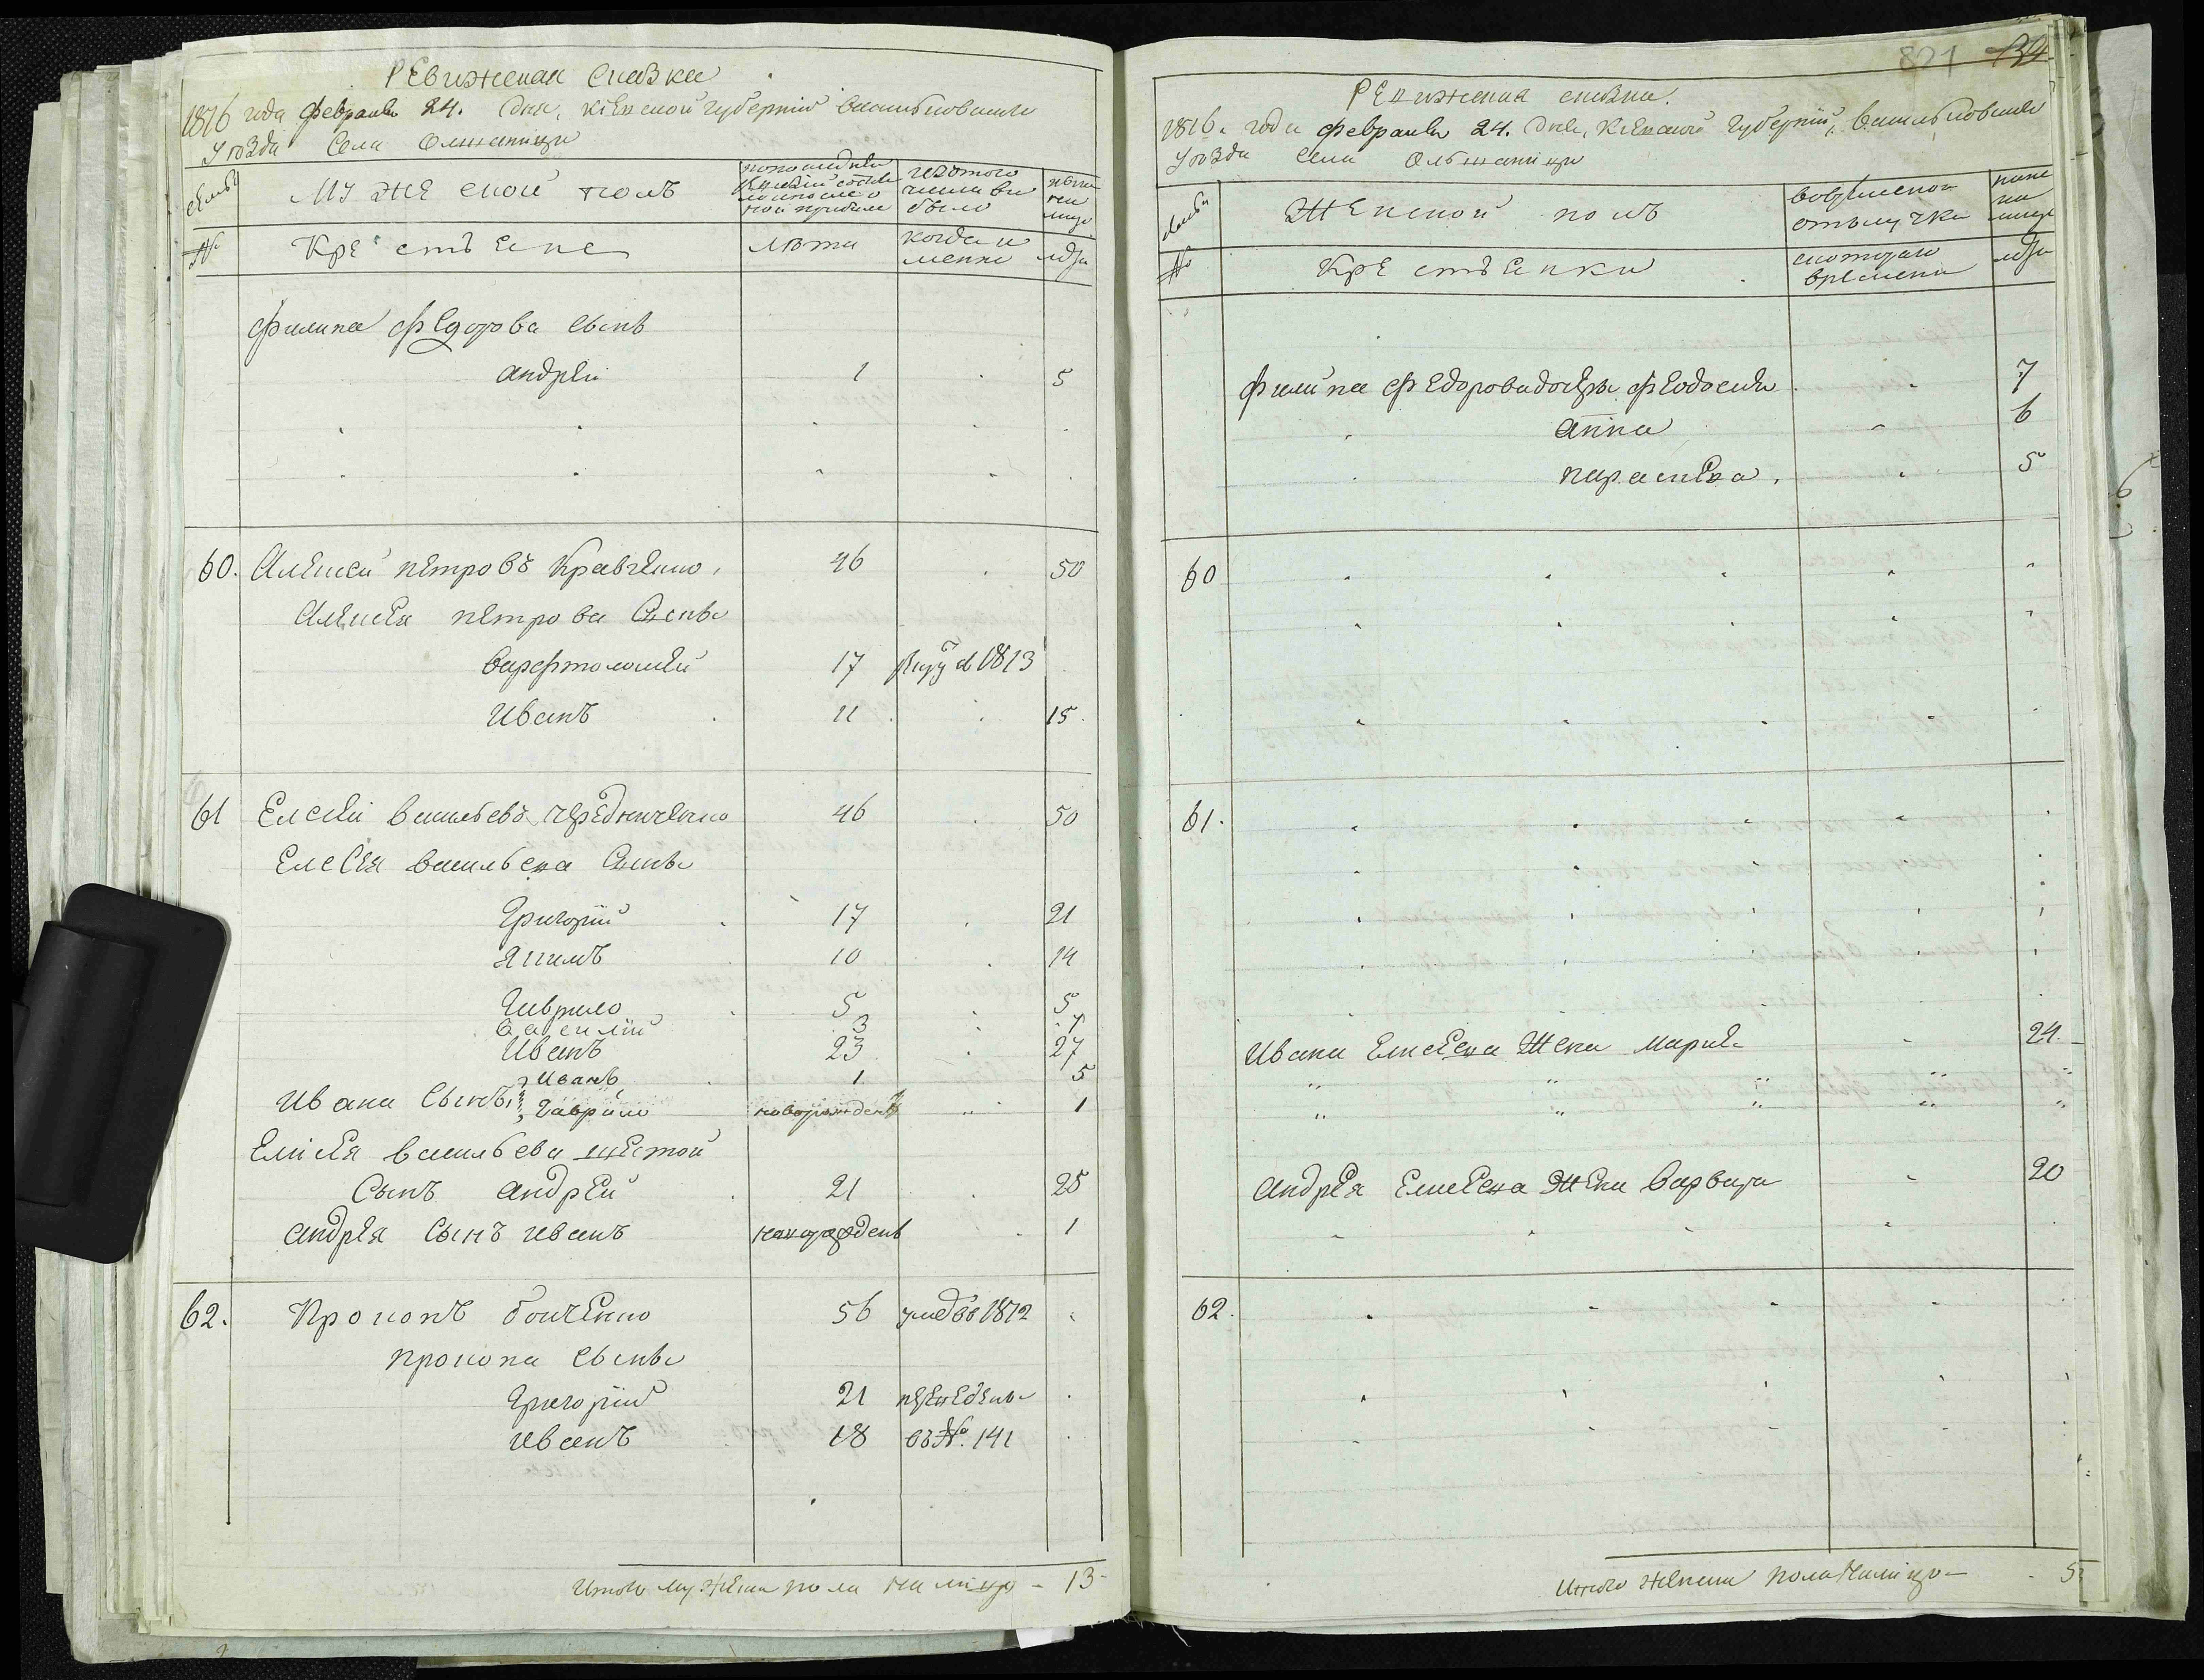 Ревижская сказка
1816 года февраля 24. дня, Кіевской губерніи Васильковскаго
уѣзда села Олшаници
семьи
Мужеской полъ
по последней ревизіи состояло и после оной прибыло
изтого числа выбыло
ныне на лицо
№
Крестьяне
лѣта
когда именно
лѣта
Филипа Федорова сынъ
андрей 1 5
60. Алексей петровъ Кравченко, 46 50
Алексея петрова сыны
варфтоломей 17 1813
Иванъ 11 15.
61 Елсей васильевъ чередниченко 46 50
Елесея васильева сыны
Григорій 17 21
Якимъ 10 14
Гаврило 5 5
Василій 3 7
Иванъ 23 27
Иванъ 1 5
Ивана сыны Гаврило новорожденъ 1
Елисея васильева шестой
сынъ андрей 21 25
андрея сынъ иванъ новорожденъ 1
62. Прокопъ бойченко 56 умер въ 1812
прокопа сыны
Григорій 21 переведены
иванъ 18 въ №. 141
Итого мужеска пола на лицо - 13
821 134
Ревижская сказка.
1816. года февраля 24. дня, Кіевской губерніи, Васильковскаго
уѣзда села Ольшаници
семьи
Женской полъ
во временной отлучке
ныне на лице
№
Крестьянки
скотораго времени
лѣта
Филипа Федорова дочеры феодосия 7
анна 6
параскева. 5
60
61.
Ивана Елисеева жена мария 24.
андрея Елисеева жена варвара 20
62.
Итого женска пола налицо - 5